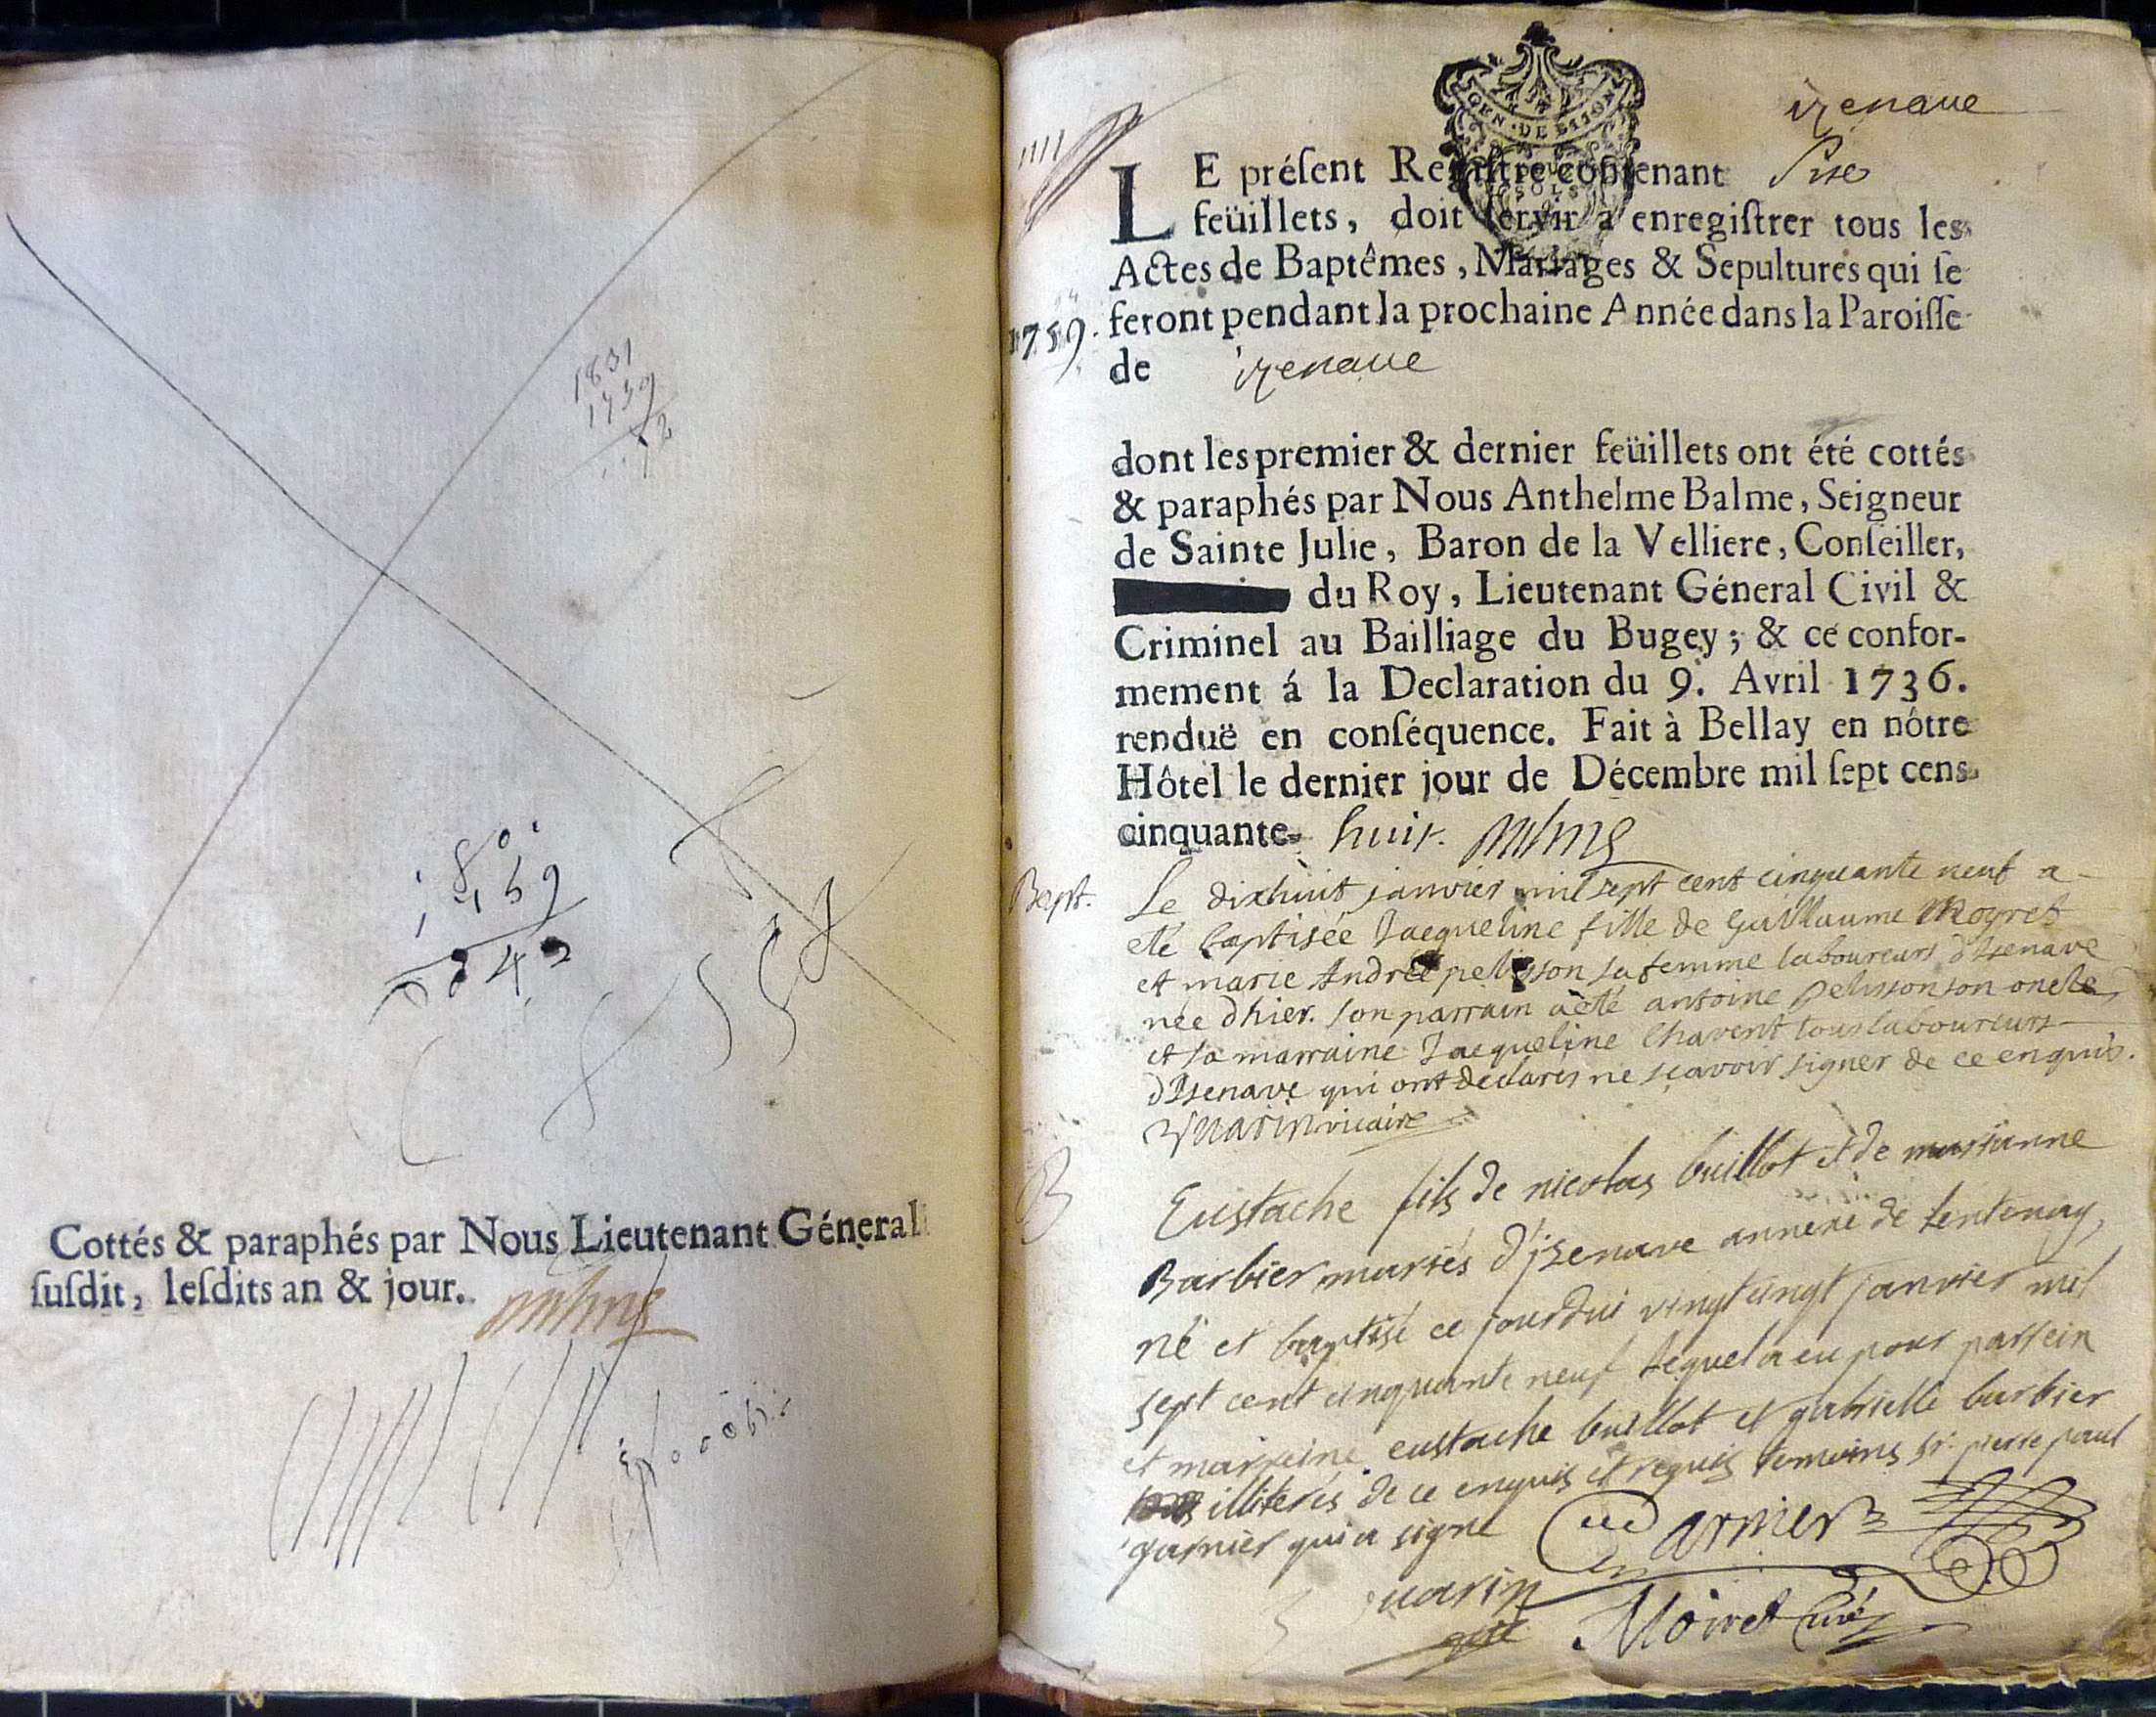 1831
1759
72
180
1759
Cottés & paraphés par Nous Lieutenant Géneral
ſuſdit, leſdits an & jour.
GEN · DE DIJON
izenave
LE préſent Regiſtre contenant Six
feüillets, doit ſervir a enregiſtrer tous les
Actes de Baptêmes, Mariages & Sepultures qui ſe
1759. feront pendant la prochaine Année dans la Paroiſſe
de izenave
dont les premier & dernier feüillets ont été cottés
& paraphés par Nous Anthelme Balme, Seigneur
de Sainte Julie, Baron de la Velliere, Conſeiller,
du Roy, Lieutenant Géneral Civil &
Criminel au Bailliage du Bugey; & ce confor-
mement á la Declaration du 9. Avril 1736.
renduë en conſéquence. Fait à Bellay en nôtre
Hôtel le dernier jour de Décembre mil ſept cens
cinquante- huit.
Bapt. Le dixhuit janvier mil sept cent cinquante neuf a
eté baptisée Jacqueline fille de Guillaume Moyret
et marie Andrée pelisson sa femme laboureurs d'Isenave
née d'hier. son parrain a èté antoine pelisson son oncle
et sa marraine Jacqueline Chavent tous laboureurs
d'Isenave qui ont declarés ne sçavoir signer de ce enquis.
vicaire
B
Eustache fils de nicolas buillot et de marianne
Barbier mariés d'jzenave annexe de Lentenay,
né et baptisé ce jourdui vingt cinqt janvier mil
sept cent cinquante neuf lequel a eu pour parrein
et marreine eustache buillot et gabrielle barbier
illiterés de ce enquis et requis temoins sr. pierre paul
garnier qui a signé Garnier
Moiret Curé